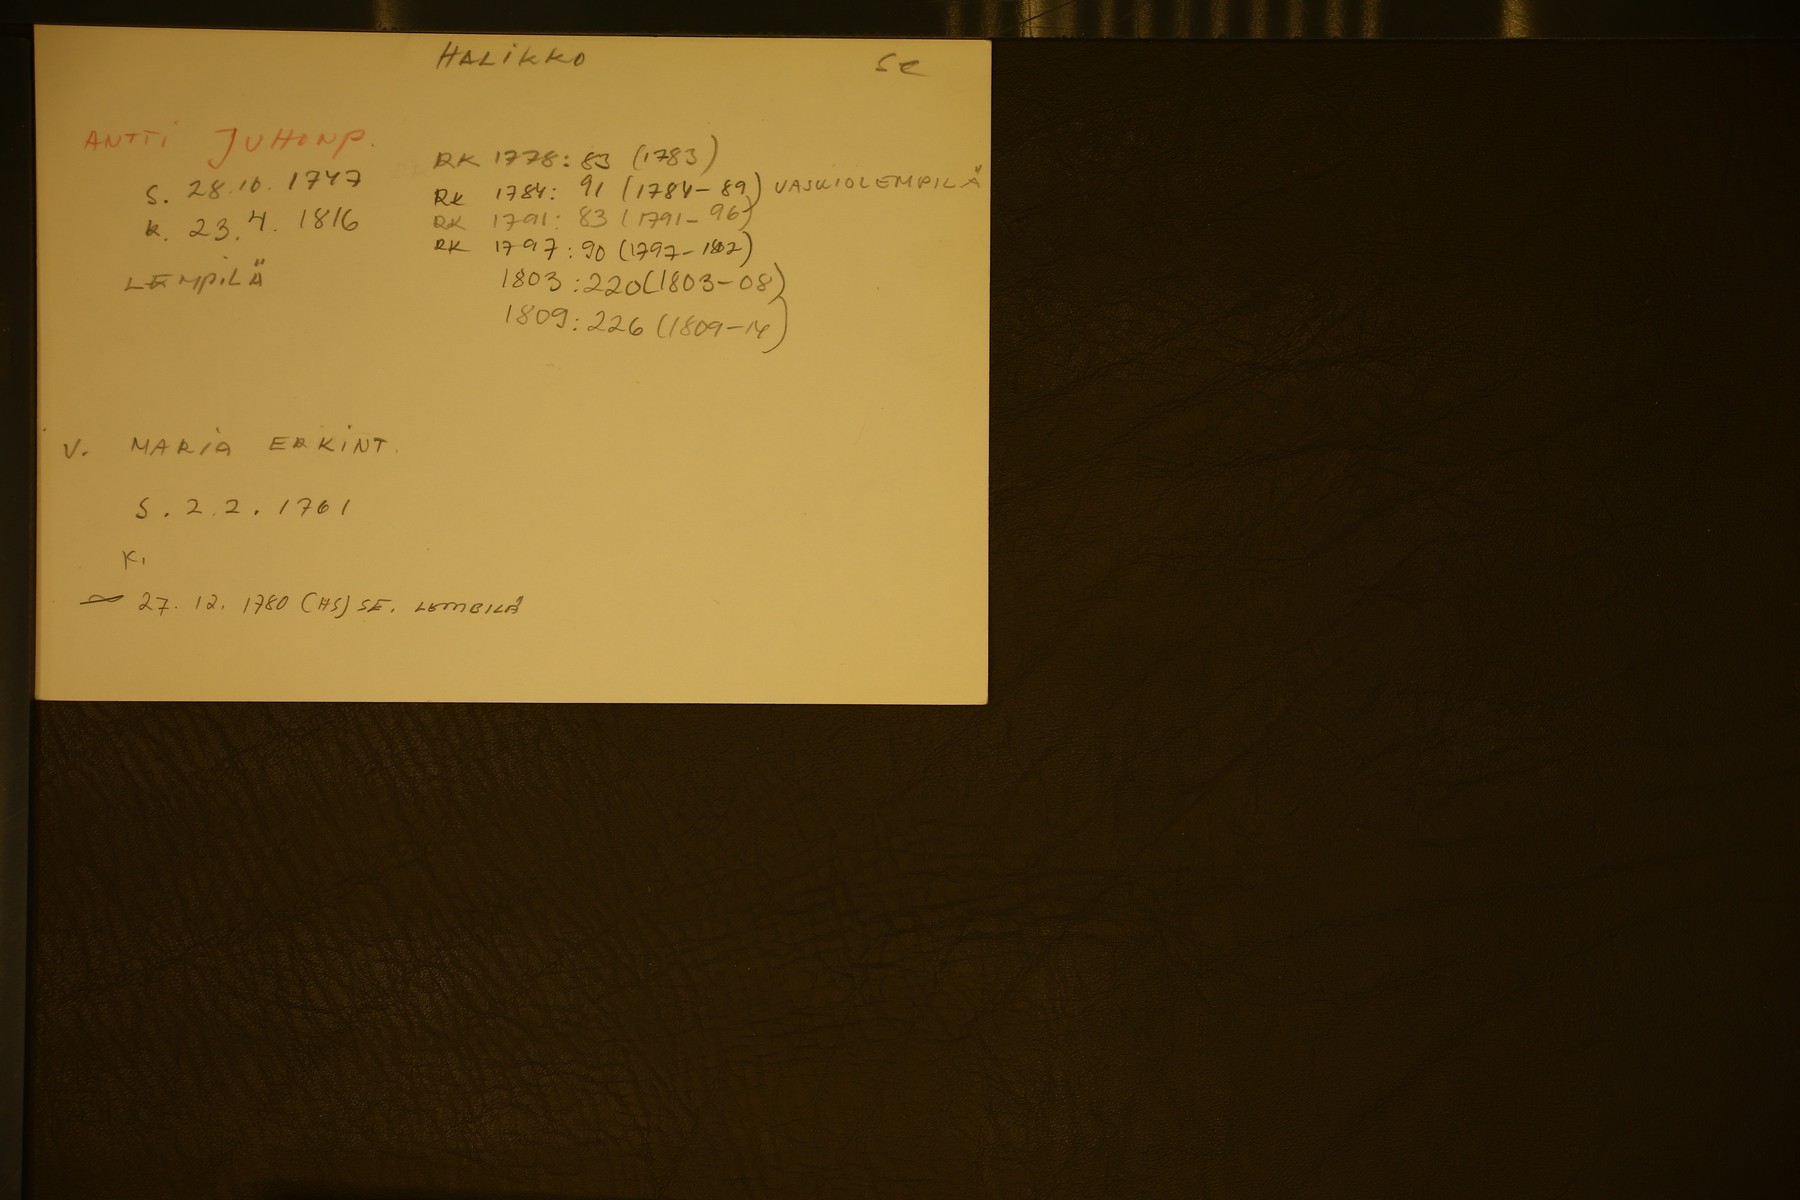 HALIKKO SE
ANTTI JUHONP.
S. 28.10. 1747
K. 23.4. 1816
LEMPILÄ
RK 1778: 83 (1783)
RK 1784: 91 (1784-89) VASKIOLEMPILÄ
RK 1791: 83 (1791-96)
RK 1797: 90 (1797-1802)
1803: 220 (1803-08)
1809: 226 (1809-14)
V. MARIA ERKINT.
S. 2.2. 1761
K.
27. 12. 1780 (HS) SE. LEMBILÄ